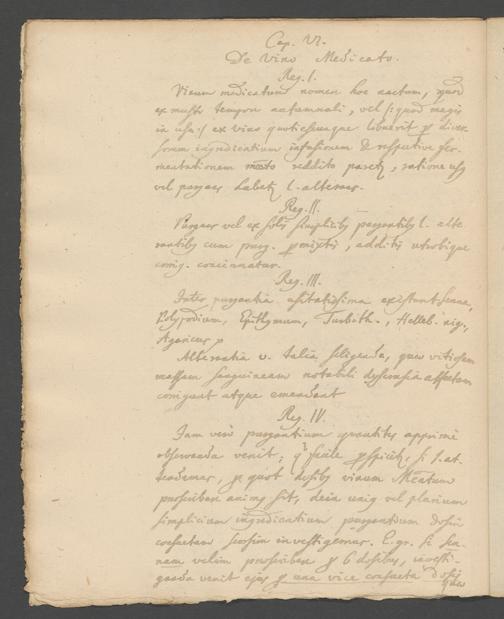 Cap. VI.
De Vino Medicato.
Reg. I.
Vinum medicatum nomen hoc nactum, quod
ex musto tempore autumnali, vel /: quod magis
in usu :/ ex vino quotiescunque libuerit p diver
sorum ingredientium infusionem & respective fer
mentationem reddito paretr, ratione usq
vel purgans habetr l. alterans.
Reg. II.
Purgans vel ex solis simplicibq purgantibq l. alte
rantibq cum purg. pmixtis, additis utrobique
corrig. concinnatur.
Reg. III.
Inter purgantia usitatissima existunt Senna,
Polypodium, Epithymum, Turbith., Helleb. nig.,
Agaricus
Alterantia v. talia seligenda, quae vitiosam
massam sanguineam notabili dyscrasia affectam
corrigant atque emendent
Reg. IV.
Jam vero purgantium quantitas apprime
observanda venit; facile si
quot dosibq vinum
praescribere sit,
simplicium ingredientium purgantium dosin
consuetam seorsim investigemus. E. gr. si Sen-
nam velim praescribere p 6 dosibus, investi-
ganda venit ejus p una vice consueta dosis